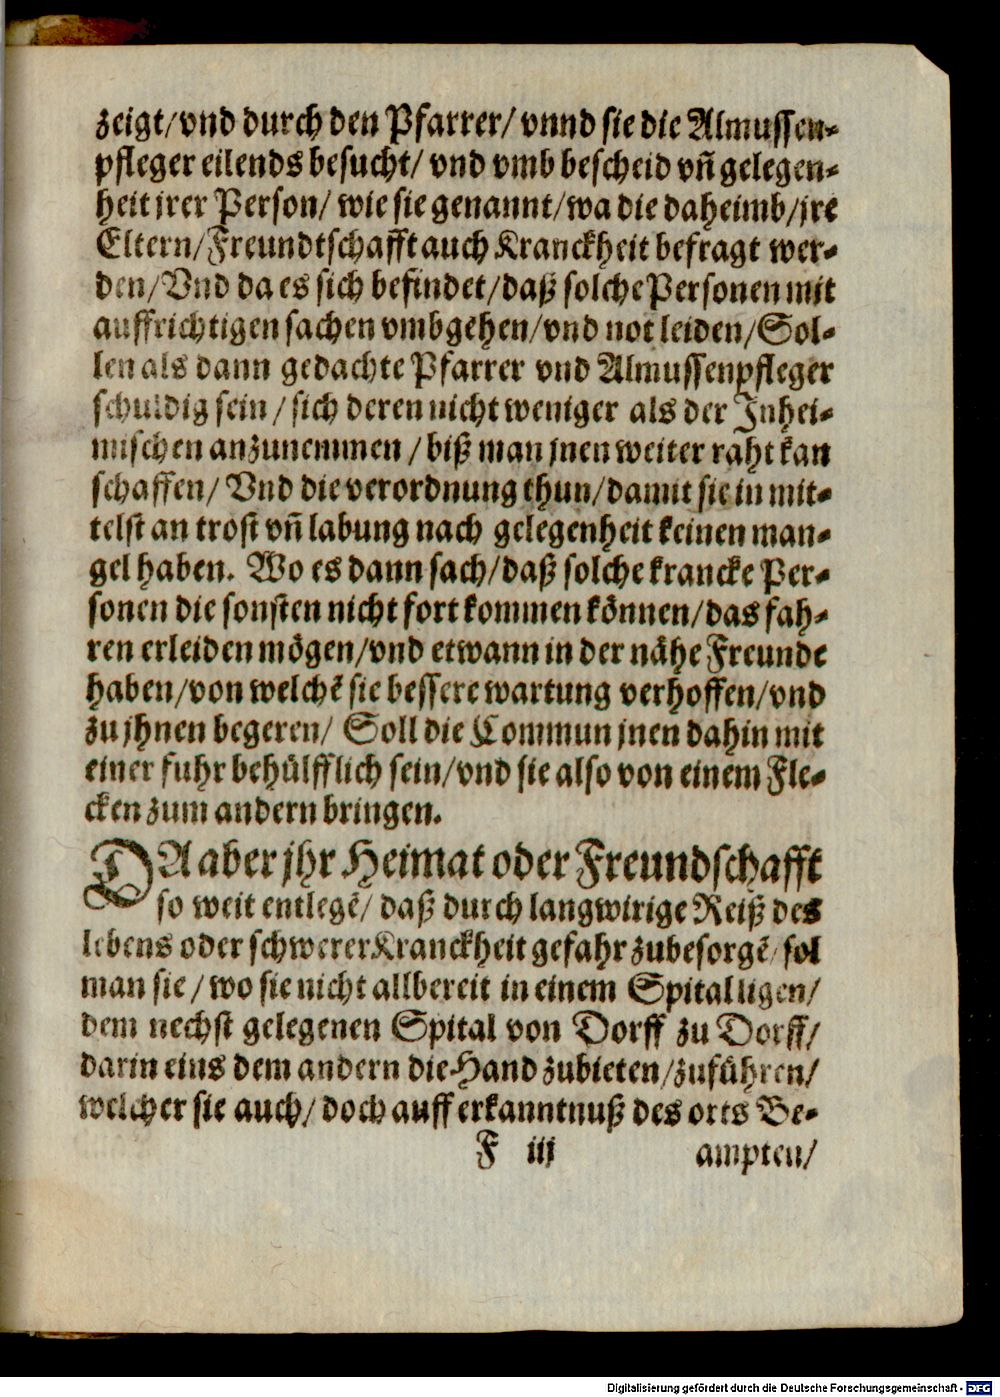 zeigt/vnd durch den Pfarrer/ vnnd sie die Almussen-
pfleger eilends besucht/ vnd vmb bescheid vñ gelegen-
heit jrer Person/ wie sie genannt/wa die daheimb/jre
Eltern/Freundtschafft auch Kranckheit befragt wer-
den/Vnd da es sich befindet/daß solche Personen mit
auffrichtigen sachen vmbgehen/vnd not leiden/Sol-
len als dann gedachte Pfarrer vnd Almussenpfleger
schuldig sein / sich deren nicht weniger als der Inhei-
mischen anzunemmen / biß man jnen weiter raht kan
schaffen/ Vnd die verordnung thun/damit sie in mit-
telst an trost vñ labung nach gelegenheit keinen man-
gel haben. Wo es dann sach/daß solche krancke Per-
sonen die sonsten nicht fort kommen können/das fah-
ren erleiden mögen/vnd etwann in der nähe Freunde
haben/von welchẽ sie bessere wartung verhoffen/vnd
zu jhnen begeren/ Soll die Commun jnen dahin mit
einer fuhr behülfflich sein/vnd sie also von einem Fle-
cken zum andern bringen.
DA aber jhr Heimat oder Freundschafft
so weit entlegẽ/ daß durch langwirige Reiß des
lebens oder schwerer Kranckheit gefahr zubesorgẽ/sol
man sie / wo sie nicht allbereit in einem Spital ligen/
dem nechst gelegenen Spital von Dorff zu Dorff/
darin eins dem andern die Hand zubieten/zuführen/
welcher sie auch/ doch auff erkanntnuß des orts Be-
F iij ampten/
Digitalisierung gefördert durch die Deutsche Forschungsgemeinschaft - DFG